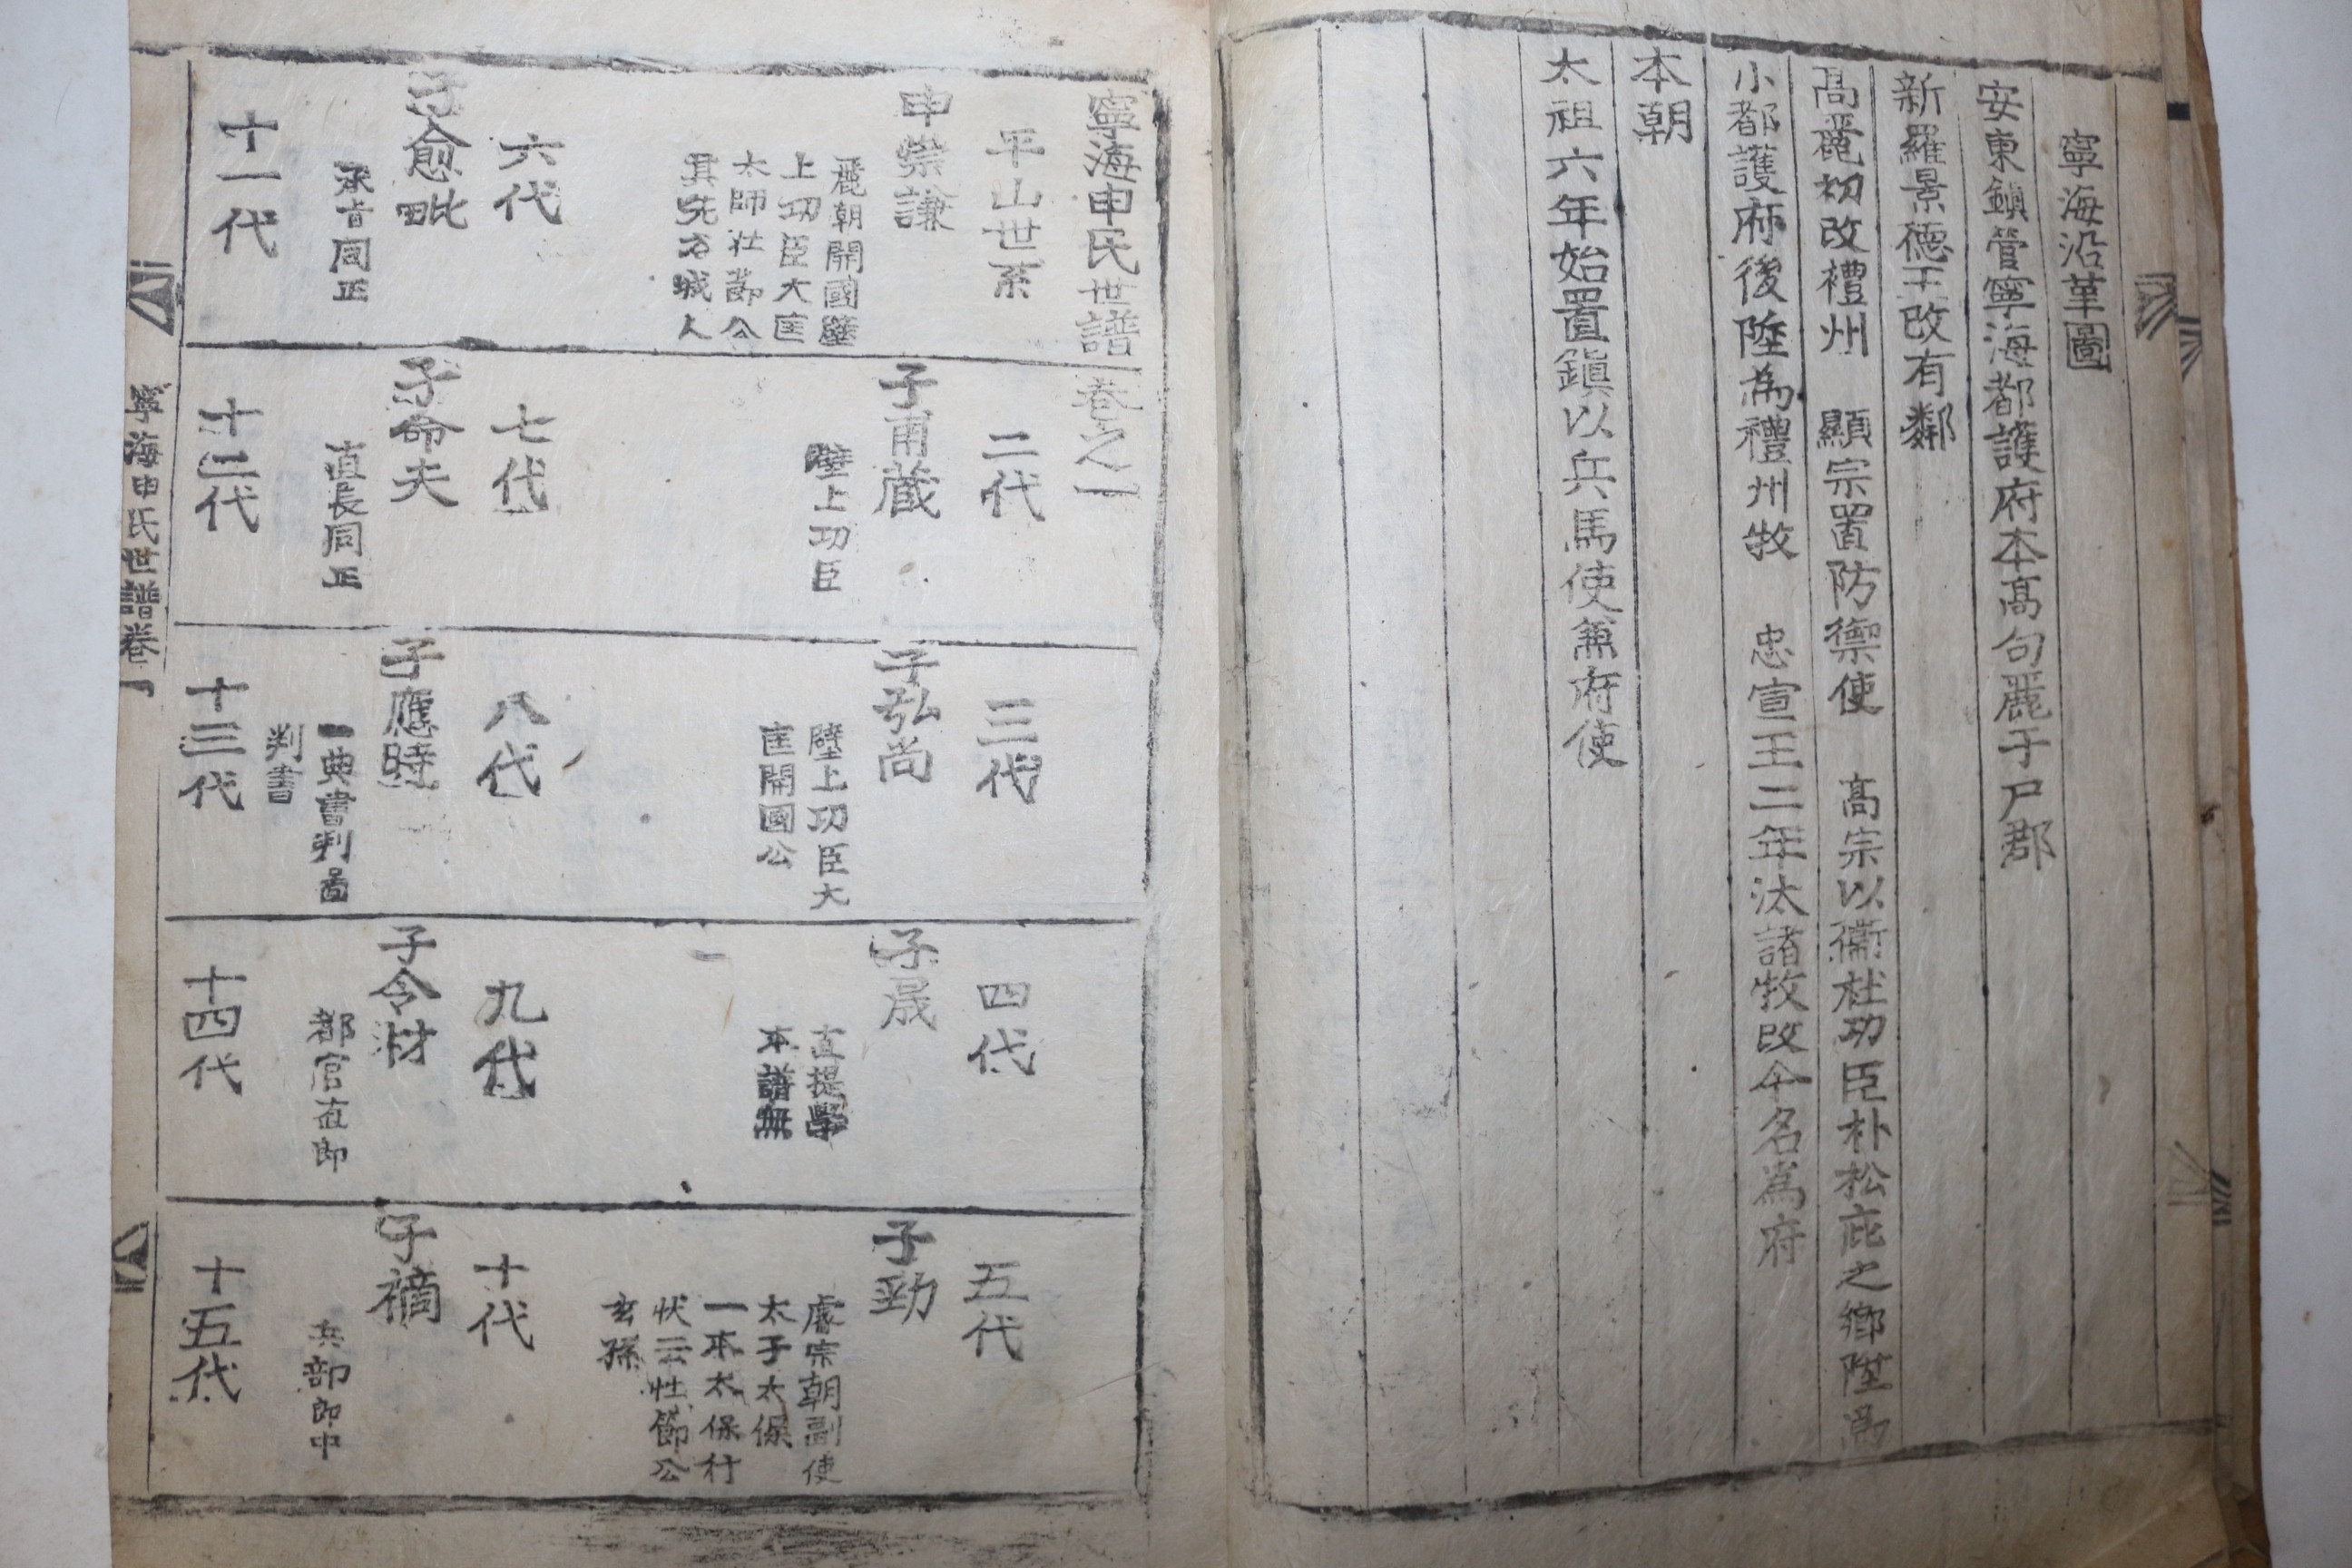 寧海沿革圖
安東鎮管寧海都護府本髙句麗于尸郡
新羅景德王改有鄰
髙麗初改禮州 顯宗置防禦使 髙宗以衞社功臣朴松庇之鄉陞爲
小都護府後陞為禮州牧 忠宣王二年汰諸牧改今名爲府
本朝
太祖六年始置鎮以兵馬使兼府使
寧海申氏世譜 卷之一
平山世系
申崇謙
麗朝開國壁
上功臣大匡
太師壯節公
其先谷城人
二代
子甫蔵
壁上功臣
三代
子弘尚
壁上功臣大
匡開國公
四代
子晟
直提學
本譜無
五代
子勁
睿宗朝副使
太子太保
一本太保行
狀云壯節公
玄孫
六代
子愈毗
同正
七代
子命夫
直長同正
八代
子應時
一典書判啚
判書
九代
子令材
都官直郎
十代
子禎
兵部郎中
十一代
十二代
十三代
十四代
十五代
寧海申氏世譜卷一